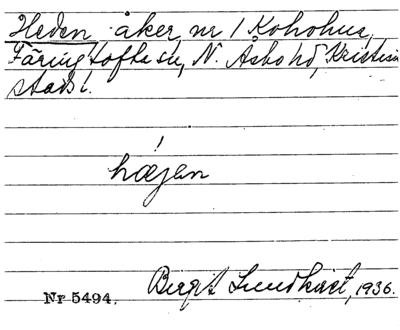 Heden åker, nr 1 Kohohus,
Färingtofta sn, N. Åsbo hd, Kristian
stads l.
hœjen
Nr 5494. Birgit Lundkvist, 1936.